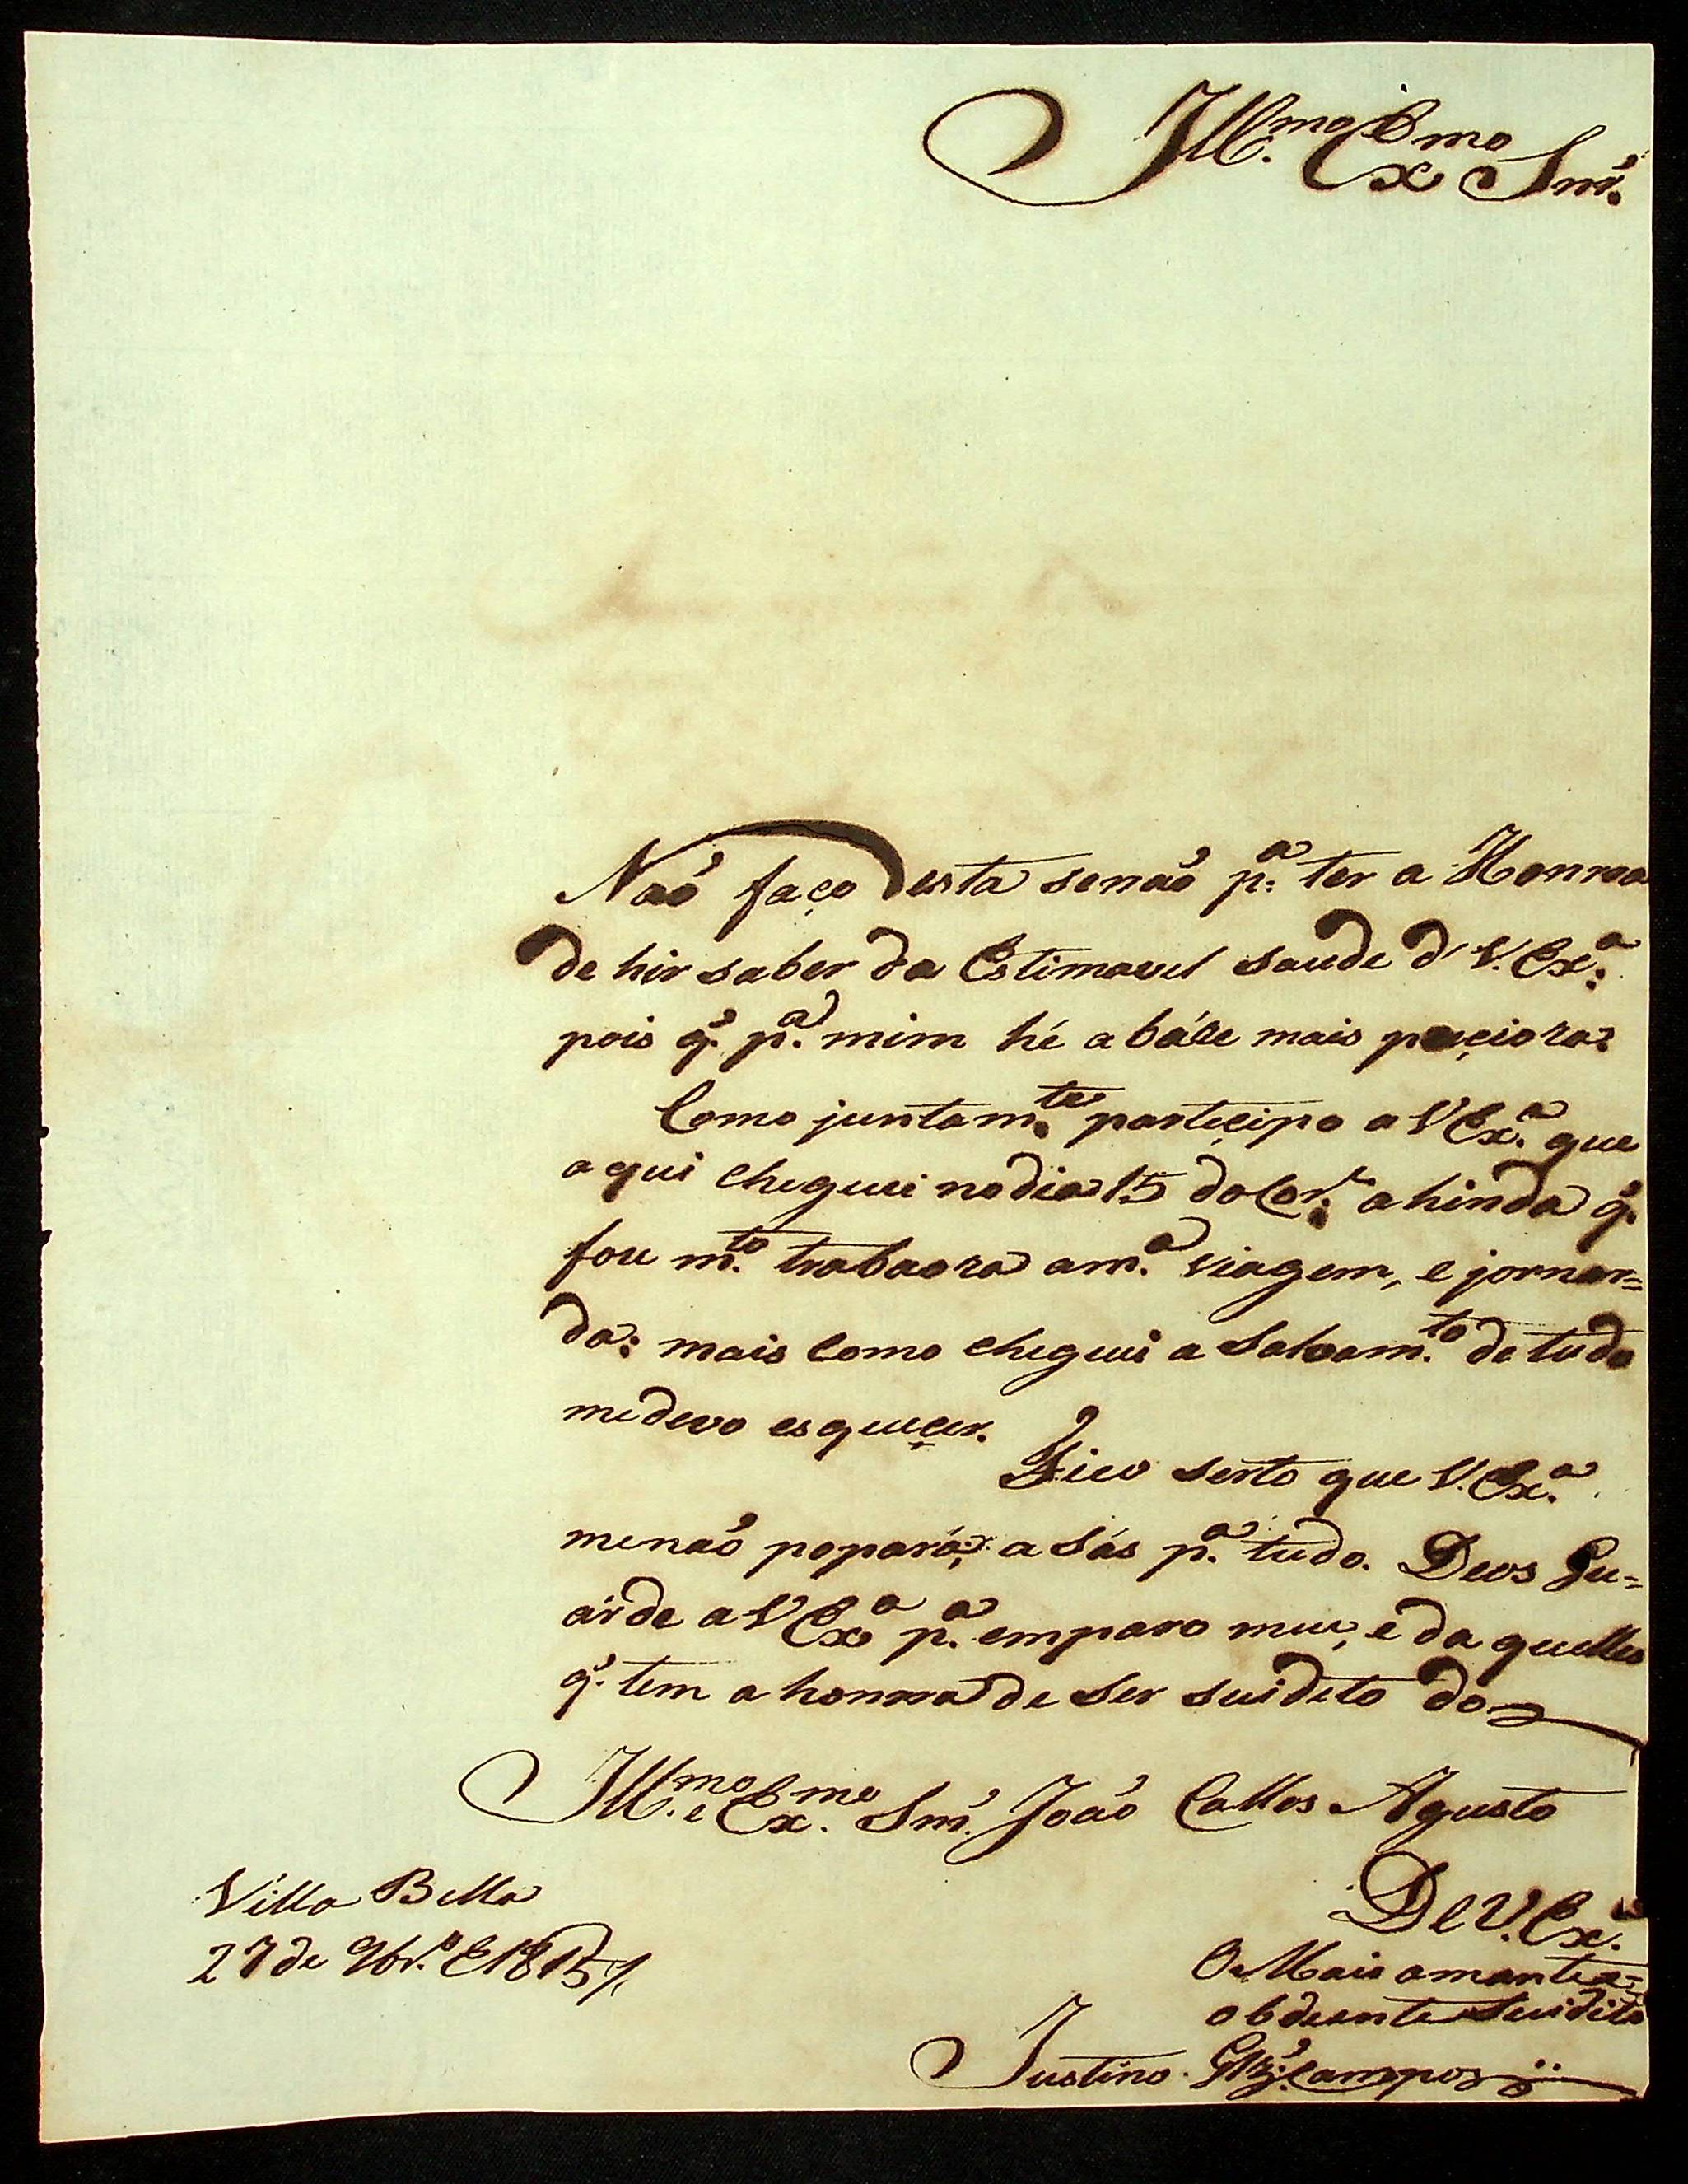 Ill.mo Ex.mo Snr.
Naõ faço esta senaõ p.a ter a Honrra
de hir saber da Estimavel saude d' V. Ex.a
pois q. p.a mim hé a báse mais preçioza.
Como juntam.te parteçipo a V Ex.a que
aqui cheguei no dia 15 do Cor.e ahinda q.
fou m.to trabaoza a m.a viagem, e jornar=
da: mais como cheguei a Salvam.to de tudo
me devo esqueçer.
Fico serto que V. Ex.a
me naõ popará, a Sás p.a tudo. Deos Gu=
arde a V Ex.a p.a emparo meu, e daquelles
q. tem a honrra de ser suideto do
Ill.mo e Ex.mo Snr. Joaõ Callos Agusto
De V. Ex.a
O Mais amante e
obdeente Suidito
Justino Glz. Campos
Villa Bella
27 de 9br.o E 1815